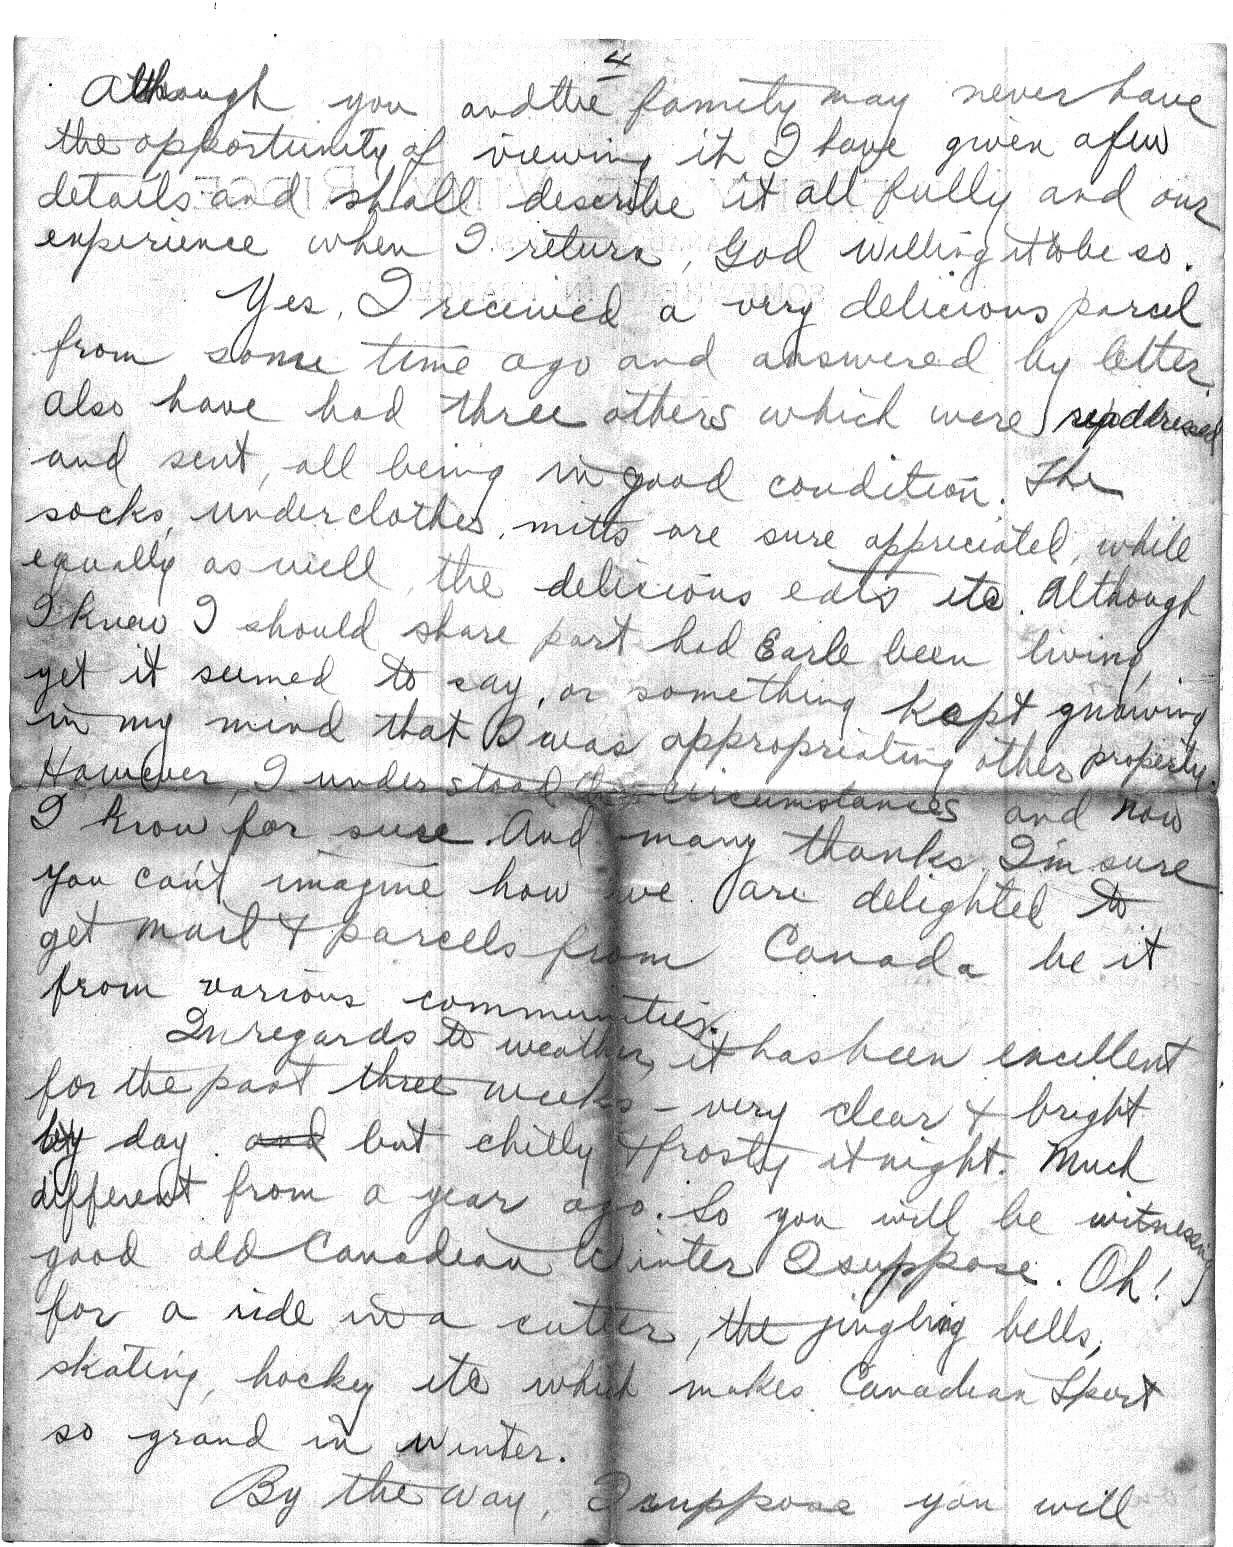 4
Although you and the family may never have
the opportunity of viewing it I have given a few
details and shall describe it all fully and our
experience when I return, God willing it to be so.
Yes, I received a very delicious parcel
from some time ago and answered by letter.
Also have had three others which were readdressed
and sent, all being in good condition. The
socks, underclothes, mitts are sure appreciated, while
equally as well, the delicious eats etc. Although
I knew I should share part had Earle been living,
yet it seemed to say, or something kept gnawing
in my mind that I was appropriating other property.
However, I understood the circumstances and now
I know for sure. And many thanks. I'm sure
you can't imagine how we are delighted to
get mail & parcels from Canada be it
from various communities.
In regards to weather, it has been excellent
for the past three weeks - very clear & bright
by day. and but chilly & frosty at night. Much
different from a year ago. So you will be witnessing
good old Canadian Winter I suppose. Oh!
for a ride in a cutter, the jingling bells,
skating, hockey etc which makes Canadian Sport
so grand in winter.
By the way, I suppose you will